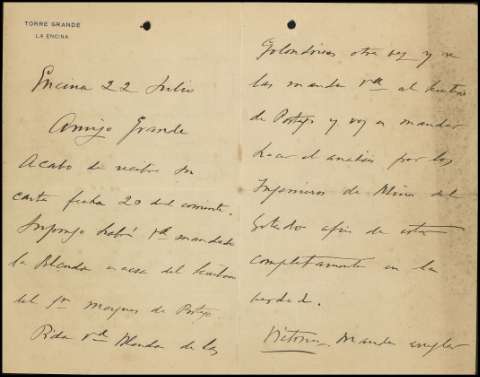 TORRE GRANDE
LA ENCINA
Encina 22 Julio
Amigo Grande
Acabo de recibir su
carta fecha 20 del corriente.
Supongo habrá Vd mandado
la Blenda a casa del
del Sr Marques de
Pida Vd Blenda de las
Golondrinas otra vez y se
las manda Vd al
de y voy a mandar
hacer el analisis por los
Ingenieros de Mina del
Estado afin de estar
completamente en la
verdad.
Victoria. Mande